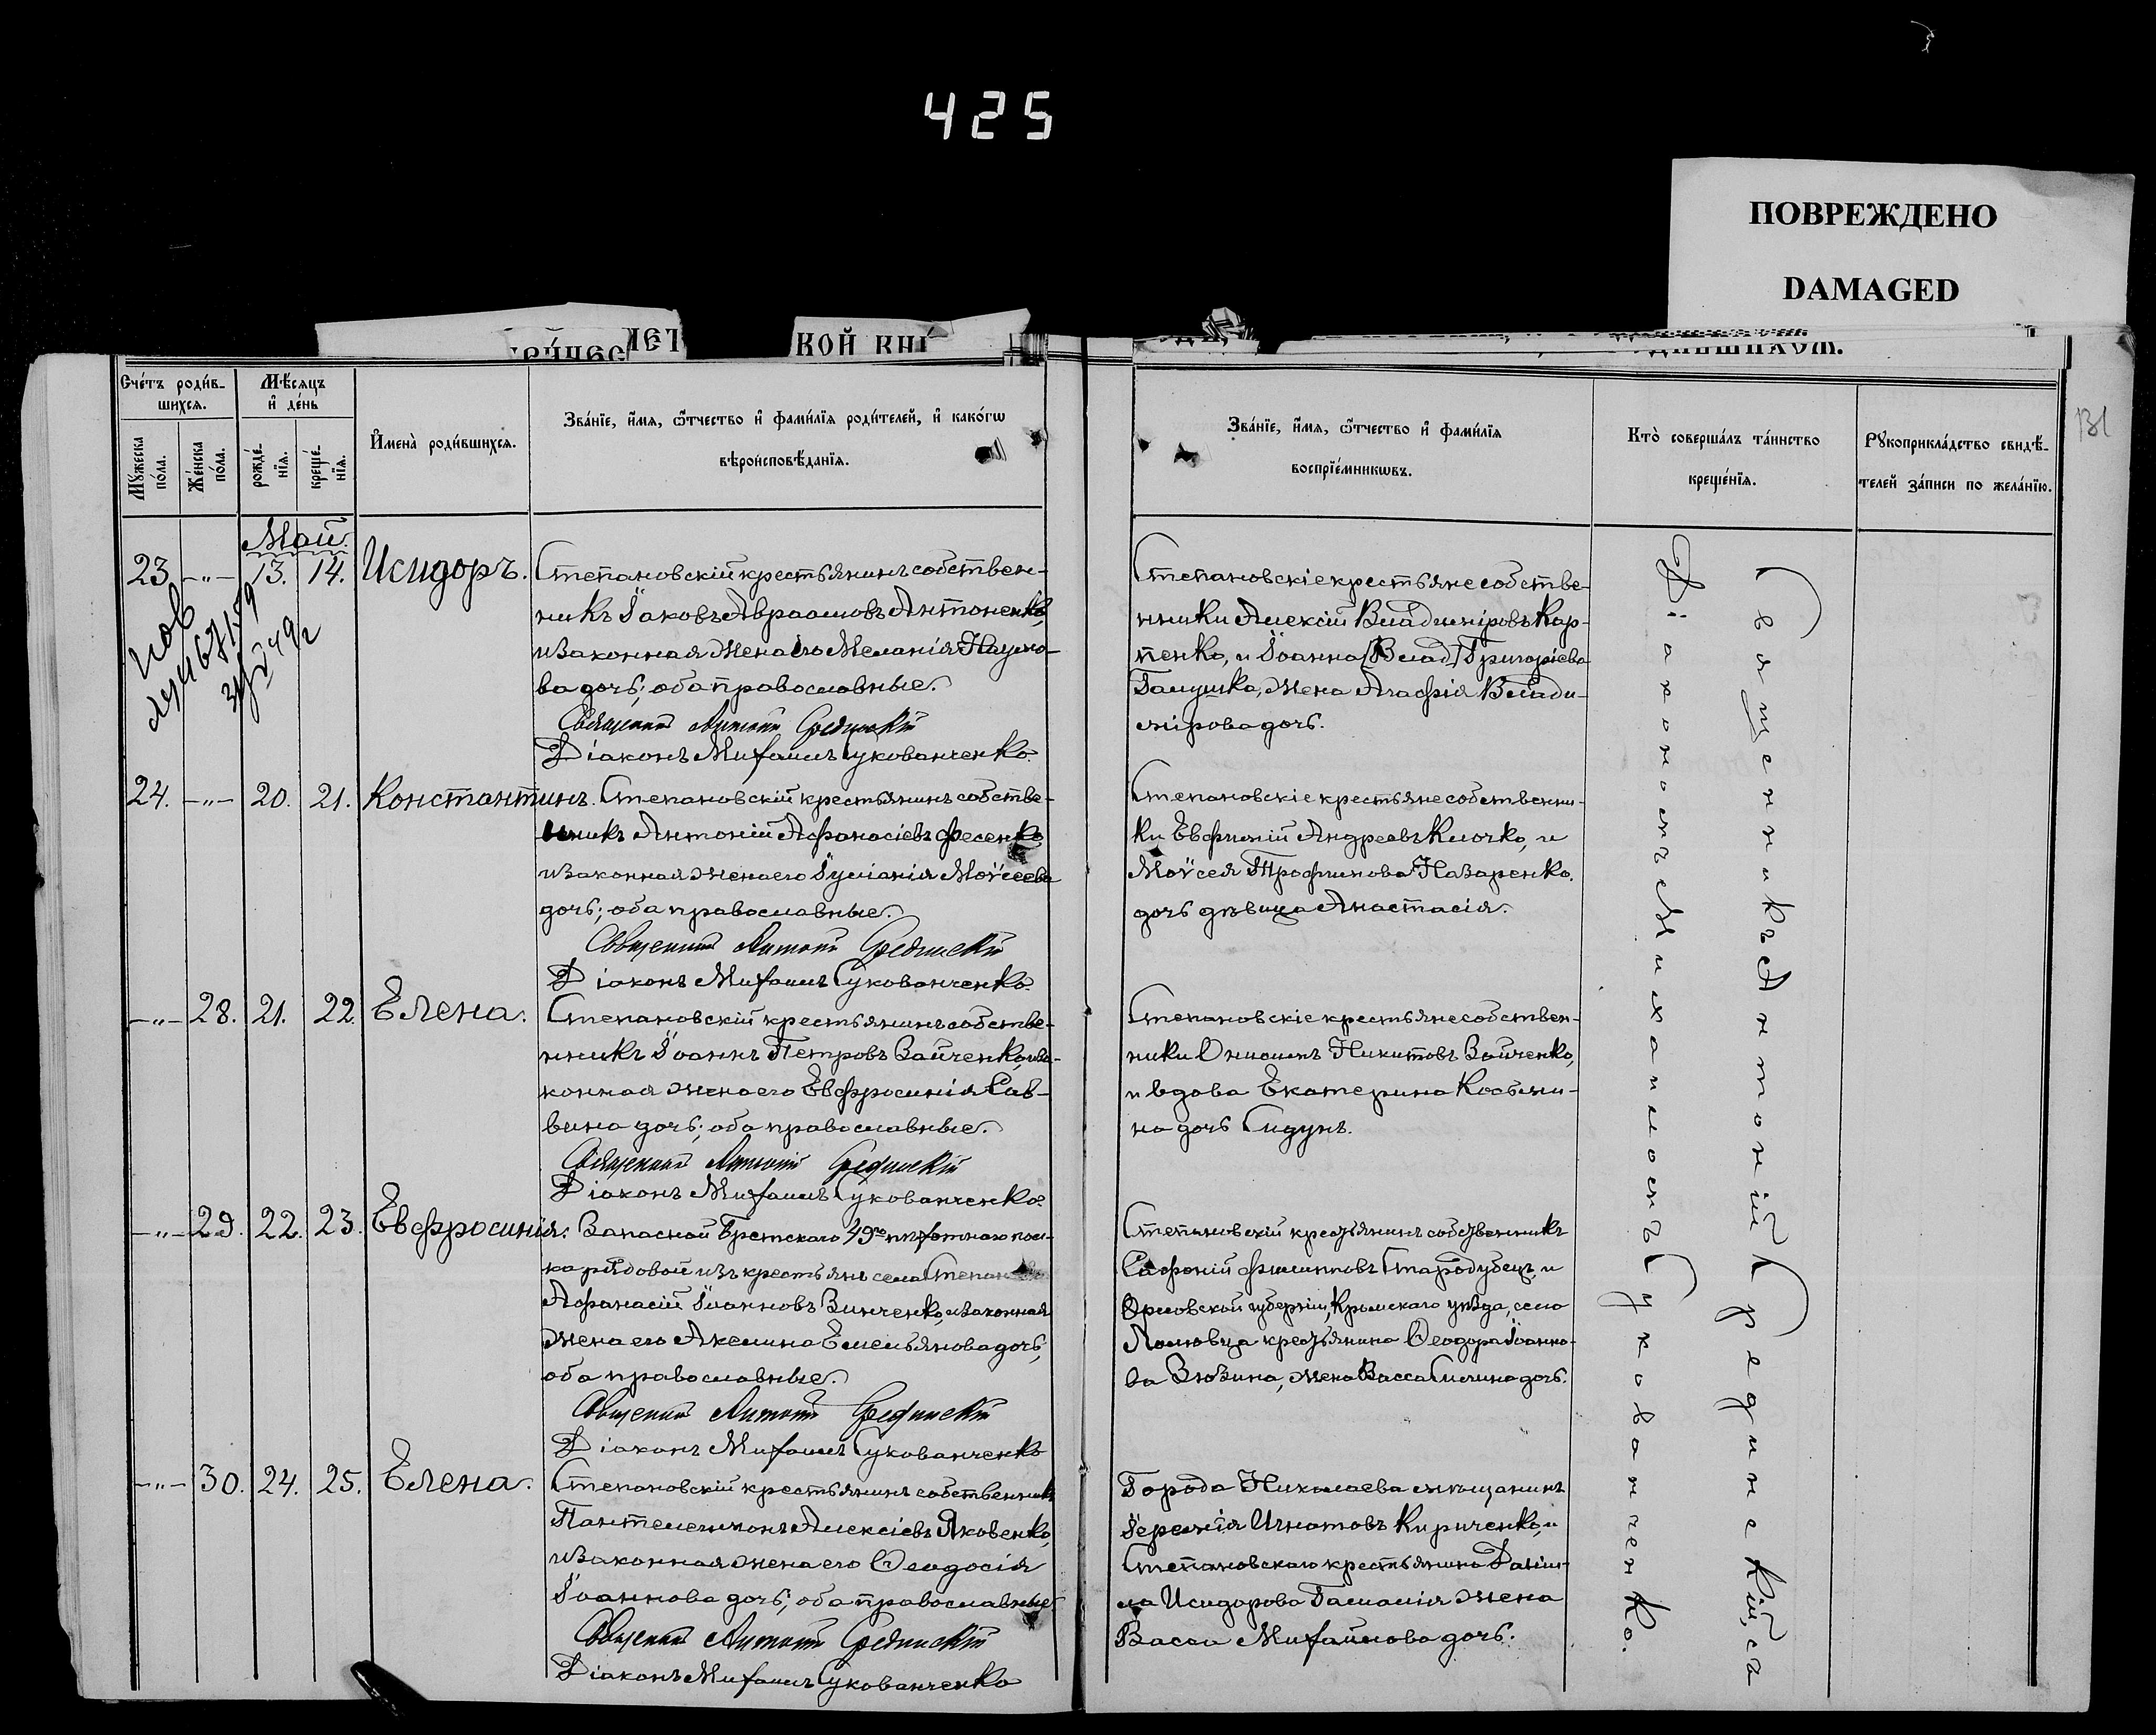 425
ПОВРЕЖДЕНО
DAMAGED
КОЙ КНИ
Счétъ роди́в-
шихся.
Му́жеска
по́ла.
Же́нска
по́ла.
Мѣ́сяцъ
и҆ де́нь
рожде́-
нїѧ.
креще́-
нїѧ.
И҆мена̀ роди́вшихсѧ.
Зва́нїе, и҆́мѧ, ѻ҆́тчество и҆ фами́лїѧ роди́телей, и҆ како́гѡ
вѣроисповѣ́данїѧ.
Зва́нїе, и҆́мѧ, ѻ҆́тчество и҆ фами́лїѧ
воспрїе́мникѡвъ.
Кто̀ соверша́лъ та́инство
креще́нїѧ.
Рꙋкоприкла́дство свидѣ́-
телей за́писи по жела́нїю.
131
Май.
23 -"- 13. 14. Исидоръ.
Степановскій крестьянинъ собствен-
никъ Іаковъ Авраамовъ Антоненко,
и законная жена его Меланія Наумо-
ва дочь; оба православные.
Священникъ Антоній Срединскій
Діаконъ Михаилъ Сукованченко.
Степановскіе крестьяне собстве-
нники Алексій Владиміровъ Кар-
пенко, и Іоанна [Влад] Григоріева
Галушка, жена Агафія Влади-
мірова дочь.
24. -"- 20. 21. Константинъ.
Степановскій крестьянинъ собстве-
нникъ Антоній Афанасіевъ Фесенко
и законная жена его Іуліанія Моѵсеева
дочь; оба православные.
Священникъ Антоній Срединскій
Діаконъ Михаилъ Сукованченко.
Степановскіе крестьяне собственни-
ки Евфимій Андреевъ Клочко, и
Моѵсея Трофимова Назаренко.
дочь дѣвица Анастасія.
-"- 28. 21. 22. Елена.
Степановскій крестьянинъ собстве-
нникъ Іоаннъ Петровъ Зайченко, и за-
конная жена его Евфросинія Сав-
вина дочь; оба православные.
Священникъ Антоній Срединскій
Діаконъ Михаилъ Сукованченко.
Степановскіе крестьяне собствен-
ники Никитовъ Зайченко,
и вдова Екатерина Косьми-
на дочь Сидунъ.
-"- 29. 22. 23. Евфросинія.
Запасной Брестскаго 49го пѣхотнаго пол-
ка рядовой изъ крестьянъ села
Афанасій Іоанновъ Зинченко, и законная
жена его Акелина Емельянова дочь,
оба православные.
Священникъ Антоній Срединскій
Діаконъ Михаилъ Сукованченко
Степановскій крестьянинъ собственникъ
Софоній Филипповъ Стародубецъ, и
Орловской губерніи, Кромскаго уѣзда, село
Ломовца крестьянина Ѳеодора Іоанно-
ва Зюзина, жена Васса Силина дочь.
-"- 30. 24. 25. Елена.
Степановскій крестьянинъ собственникъ
Пантелеимонъ Алексіевъ Яковенко,
и законная жена его Ѳеодосія
Іоаннова дочь; оба православные
Священникъ Антоній Срединскій
Діаконъ Михаилъ Сукованченко
Города Николаева мѣщанинъ
Іеремія Игнатовъ Кириченко, и
Степановскаго крестьянина Даніи-
ла Исидорова жена
Васса Михайлова дочь.
Священникъ Антоній Срединскій, съ
Діакономъ Михаиломъ Сукованченко.